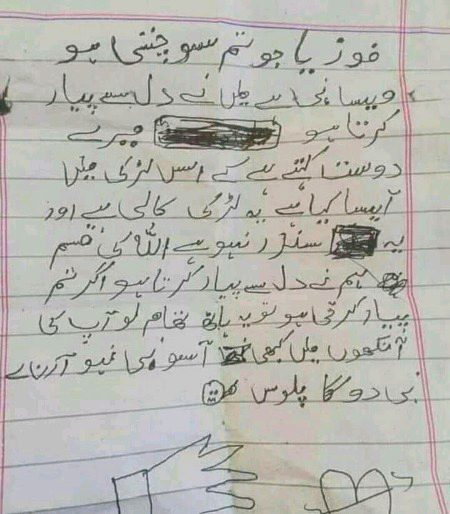 فوزیا جو تم سوچتی ہو
ویسا نہی ہے میں نے دل سے پیار
کرتا ہو میرے
دوست کہتے ہے کے اس لڑکی میں
آیسا کیا ہے یہ لڑکی کالی ہے اور
یہ سنڈر نہو ہے اللہ کی قسم
ہم نے دل سے پیار کرتا ہو اگر تم
پیار کرتی ہو تو یہ ہاتھ تھام لو آپ کی
آنکھوں میں کبھی آسو
دو گا پلوس